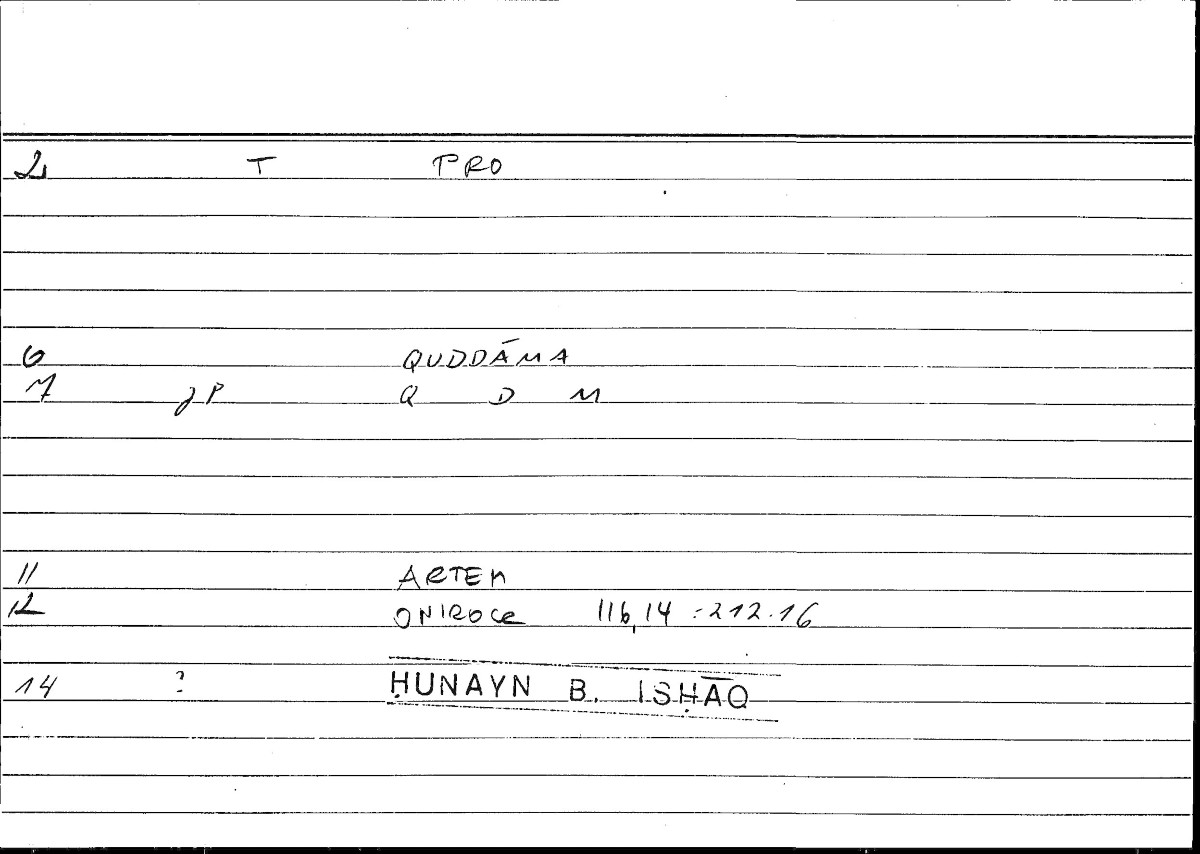 2 T PRO
6 QUDDĀMA
7 gP Q D M
11 ARTEM
12 ONIROCR 116,14 = 212.16
14 ? ḤUNAYN B. ISḤĀQ